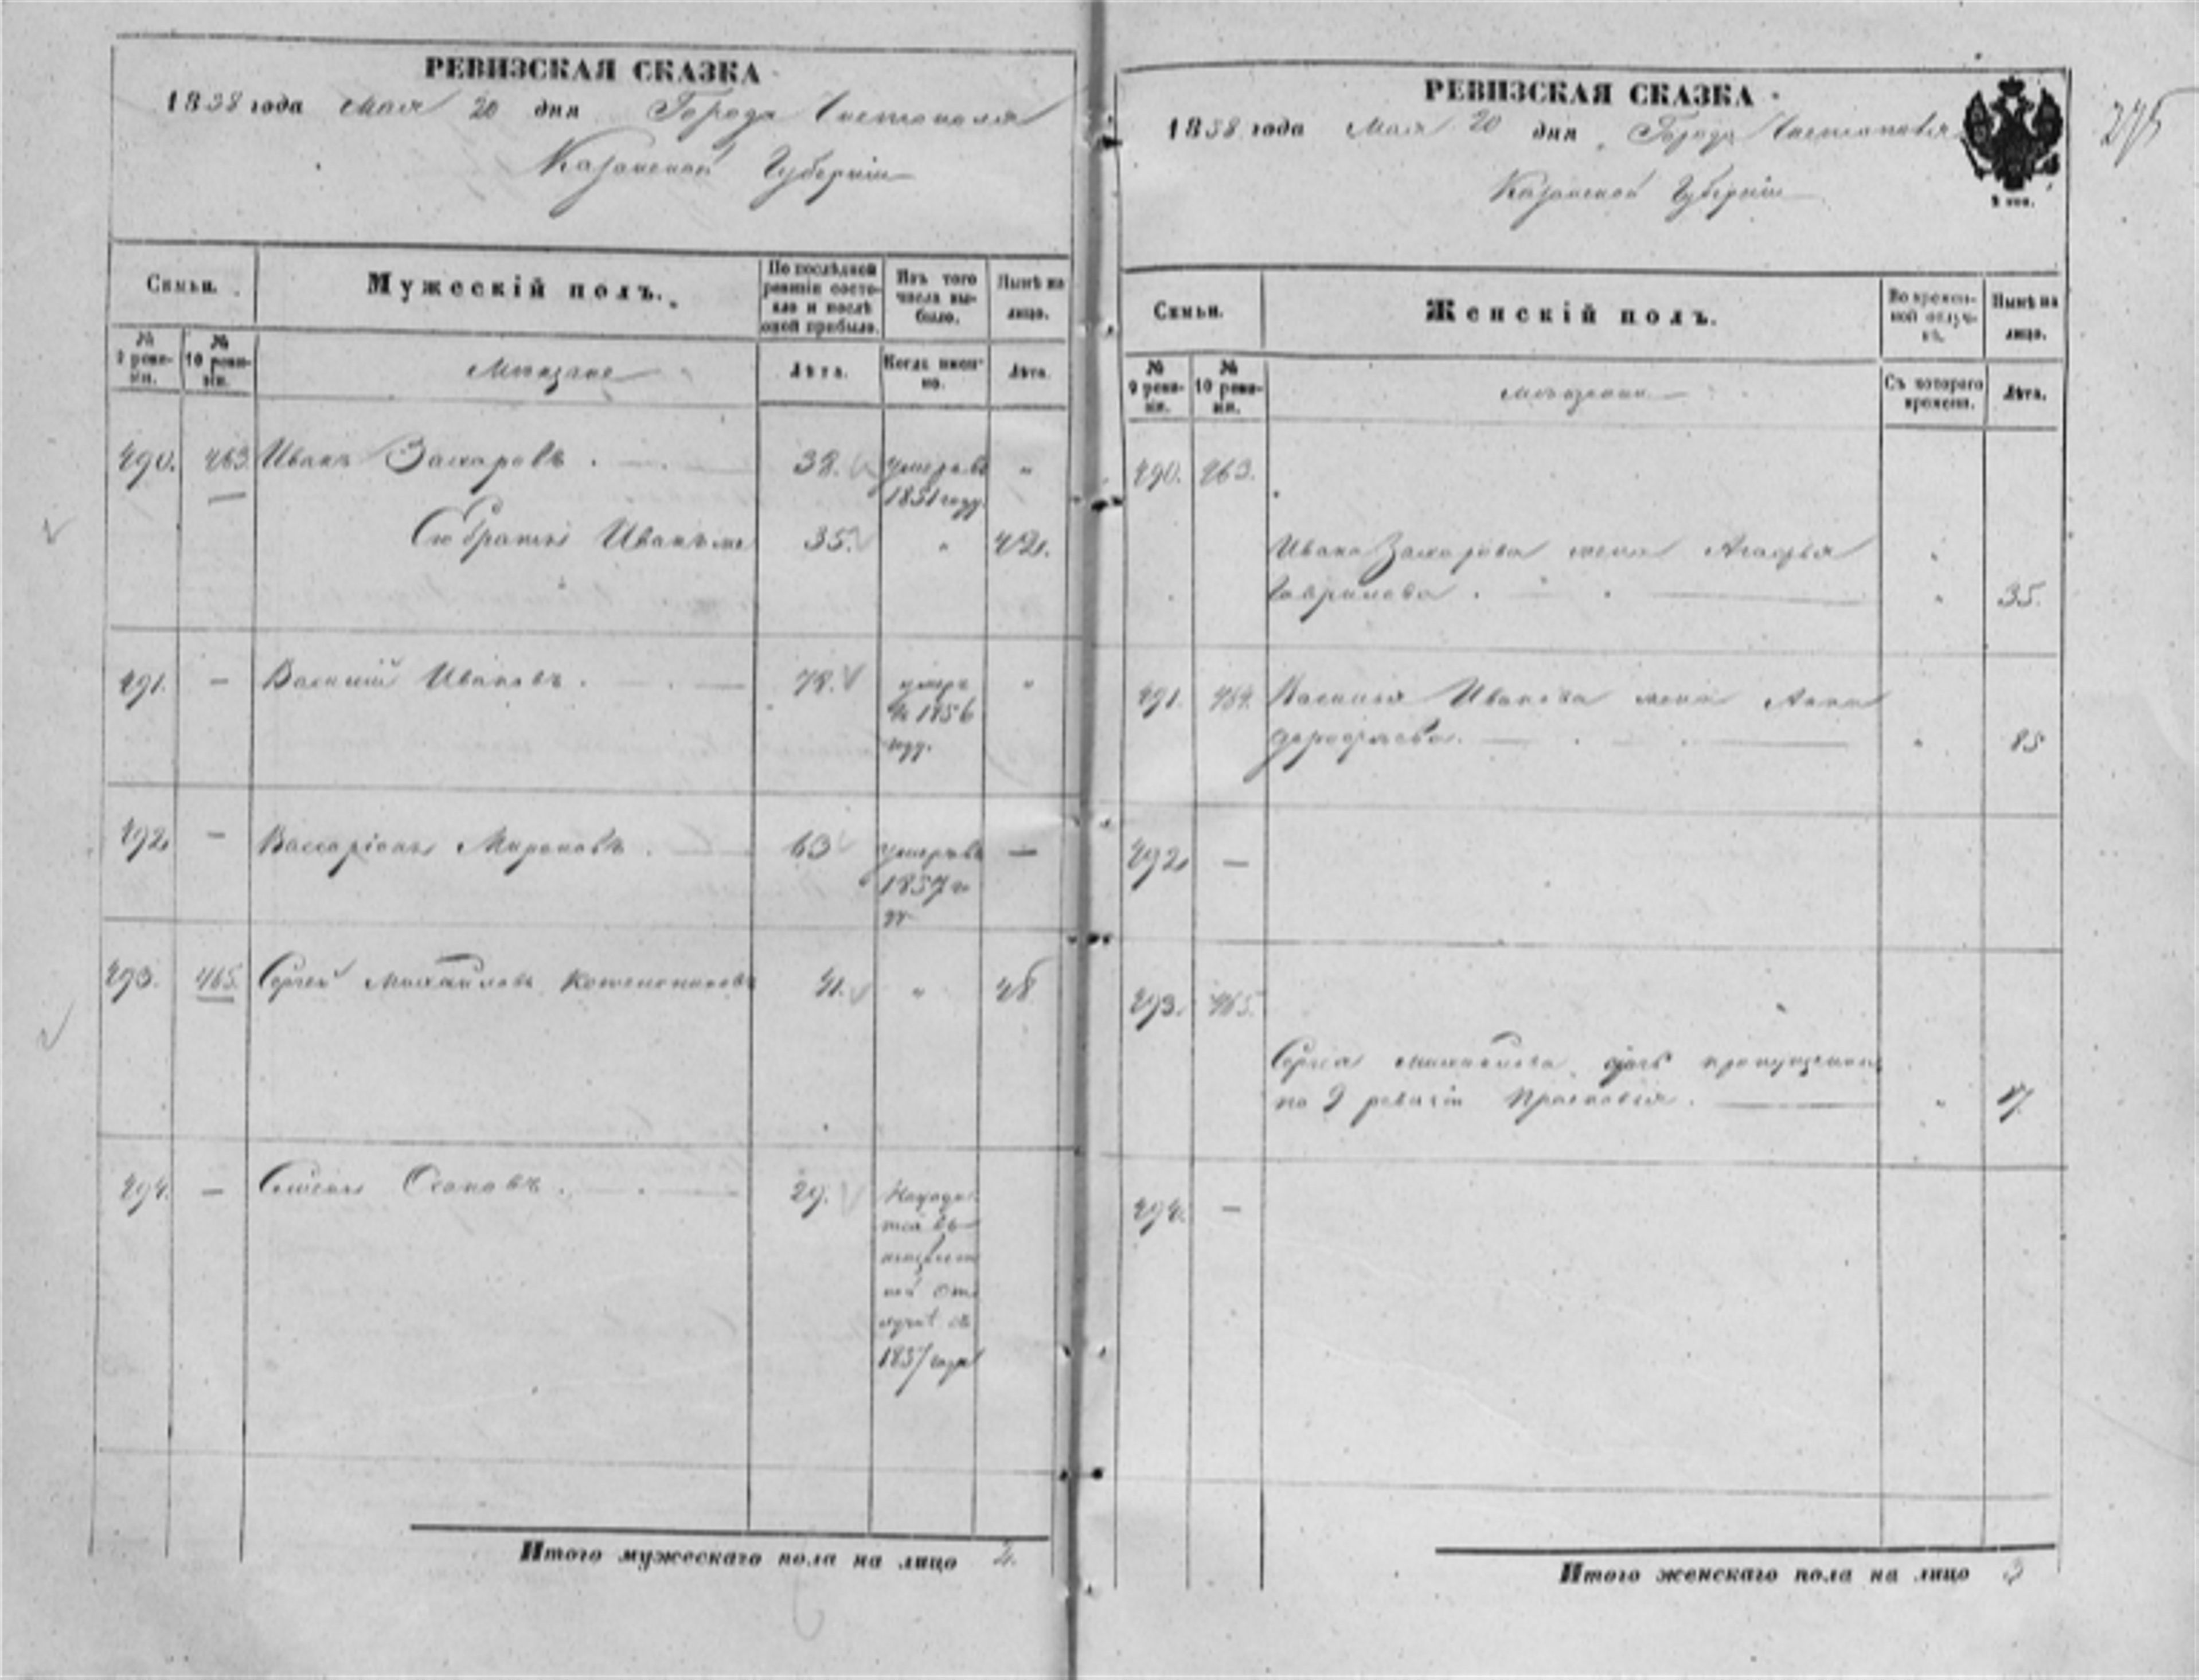 РЕВИЗСКАЯ СКАЗКА
1858 года Мая 20 дня Города Чистополя
Казанской Губернiи
Семьи.
Мужескiй полъ.
По послѣдней ревизiи состояло и послѣ оной прибыло.
Изъ того числа выбыло.
Нынѣ на лицо.
№ 9 ревизiи.
№ 10 ревизiи.
Мещане
Лѣта.
Когда именно.
Лѣта.
490. 463. Иванъ Захаровъ . 38. умеръ въ "
1851 году.
Его братъ Иванъ же 35. " 42.
491. — Василiй Ивановъ . 78. умеръ "
въ 1856
году.
492 — Виссарiонъ Мироновъ . 63 умеръ въ —
1857 го
ду
493. 465. Сергей Михайловъ 41. " 48
494. — Семенъ Осиповъ . 29. Находи
тся въ
ной от
лучкѣ съ
1857 года
Итого мужескаго пола на лицо 2.
РЕВИЗСКАЯ СКАЗКА
1858 года Мая 20 дня Города Чистополя
Казанской Губернiи
275
Семьи.
Женскiй полъ.
Во временной отлучкѣ.
Нынѣ на лицо.
№ 9 ревизiи.
№ 10 ревизiи.
мещанки
Съ котораго времени.
Лѣта.
490. 463.
Ивана Захарова жена Агафья "
Гаврилова . " 35.
491. 464. Василья Иванова жена Анна
Дорофѣева. " 85
492 —
493. 465.
Сергея Михайлова дочь пропущенная
по 9 ревизiи Прасковья . " 17.
494. —
Итого женскаго пола на лицо 3